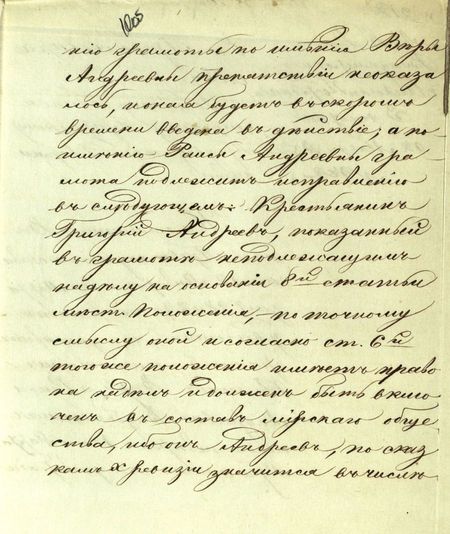 1205
нію грамоты по имѣнію Вѣры
Андреевны препятствій неоказа
лось, и она будетъ въ скоромъ
времени введена въ дѣйствіе; а по
имѣнію Раисы Андреевны гра
мота подлежитъ исправленію
въ слѣдующемъ: Крестьянинъ
Григорій Андреевъ, показанный
въ грамотѣ неподлежащимъ
надѣлу на основаніи 8й статьи
мѣст. Положенія, – по точному
смыслу оной и согласно ст. 6й
того же положенія имѣетъ право
на надѣлъ и долженъ быть вклю
ченъ въ составъ мірскаго обще
ства, ибо онъ Андреевъ, по сказ
камъ X ревизіи значится въ числѣ